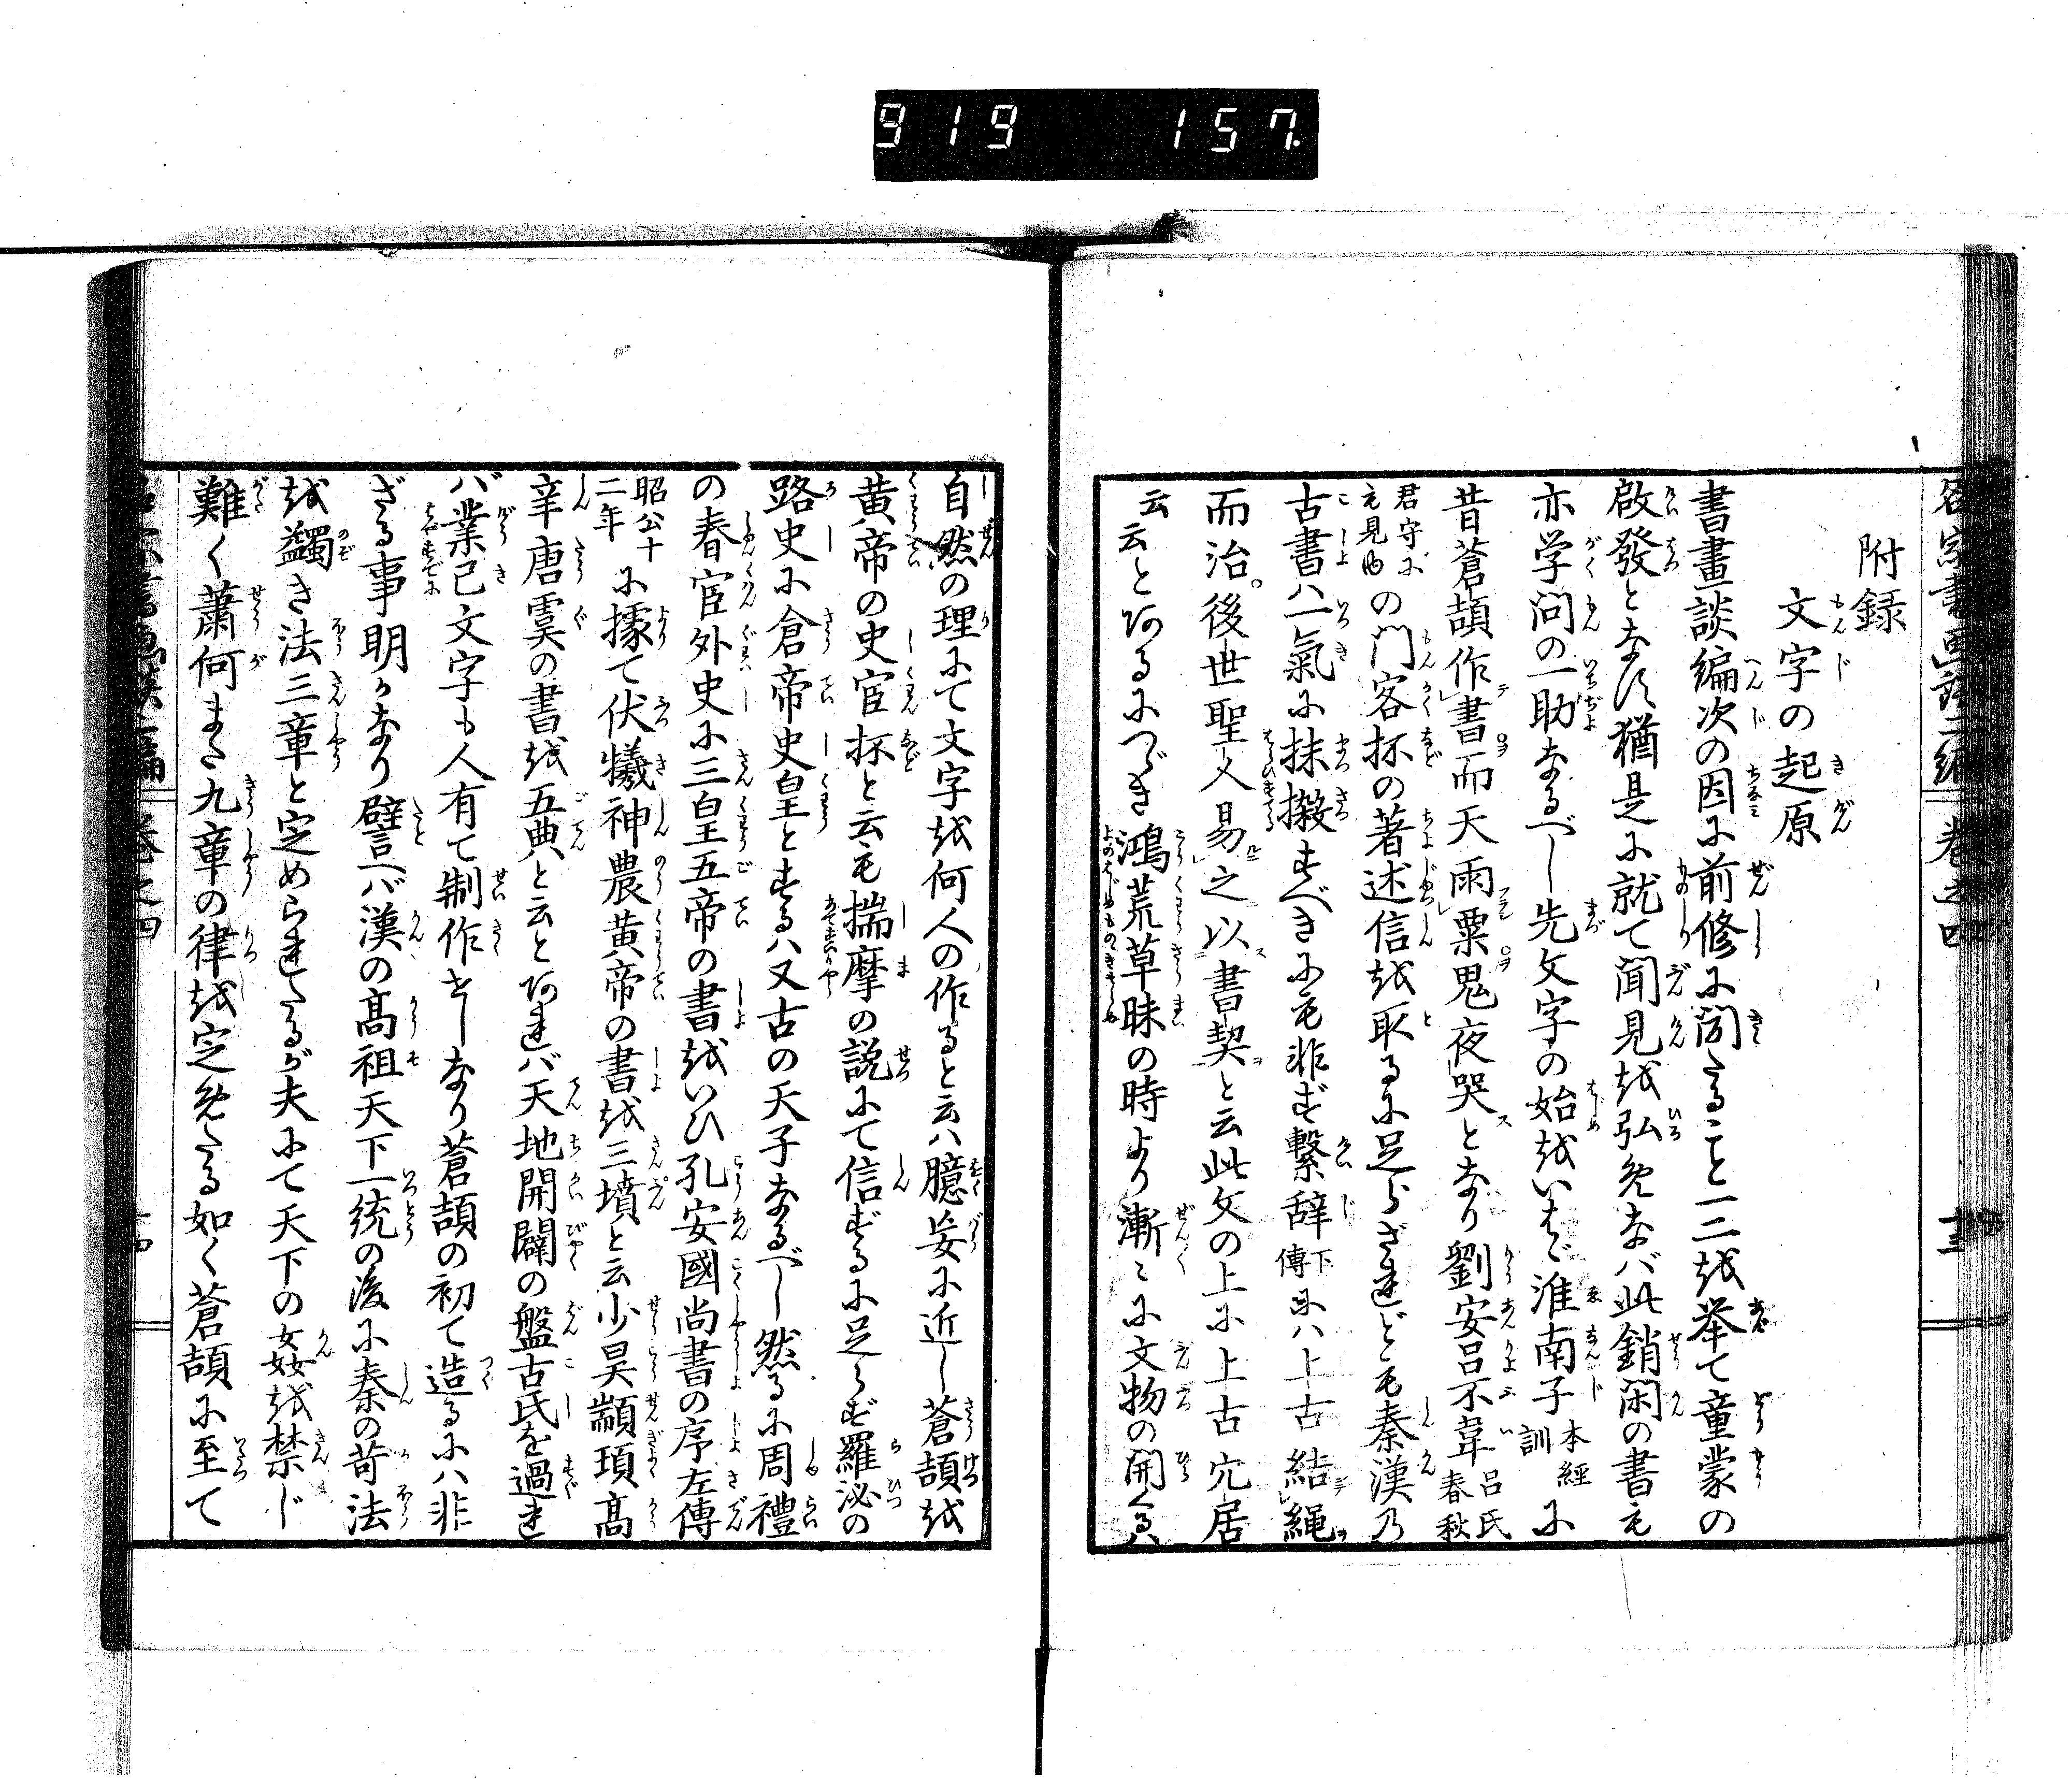 919 157.
附録
文字の起原
書畫談編次の因に前修に聞たること一二を挙て童蒙の
啟發となす猶是に就て聞見を弘めなバ此銷閑の書も
亦学問の一助なるべし先文字の始をいはゞ淮南子本經訓に
昔蒼頡作書而天雨粟鬼夜哭となり劉安呂不韋呂氏春秋
君守にも見ゆの門客抔の著述信を取るに足らざれども秦漢乃
古書ハ一氣に抹摋すべきにも非ず繋辞下傳にハ上古結縄
而治。後世聖人易之以書契と云此文の上に上古穴居
云云とあるにつゞき鴻荒草昧の時より漸〻に文物の開くるハ
自然の理にて文字を何人の作ると云ハ臆妄に近し蒼頡を
黄帝の史官抔と云も揣摩の説にて信ずるに足らず羅泌の
路史に倉帝史皇とするハ又古の天子なるべし然るに周禮
の春官外史に三皇五帝の書をいひ孔安國尚書の序左傳
昭公十二年に據て伏犧神農黄帝の書を三墳と云少昊顓頊髙
辛唐虞の書を五典と云とあれバ天地開闢の盤古氏を過れ
バ業已文字も人有て制作せしなり蒼頡の初て造るにハ非
ざる事明かなり譬バ漢の髙祖天下一統の後に秦の苛法
を蠲き法三章と定められたるが夫にて天下の姦を禁じ
難く蕭何また九章の律を定めたる如く蒼頡に至て